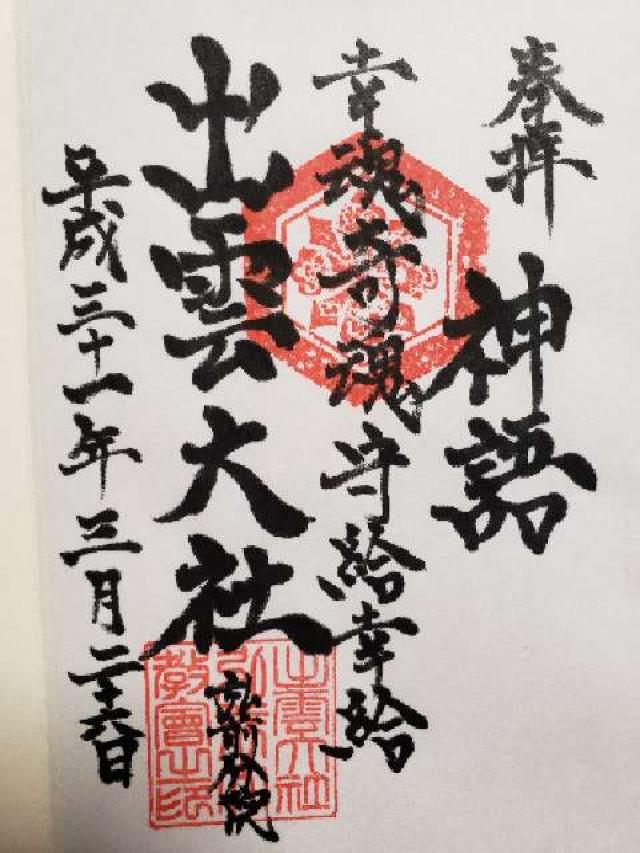 奉拝
神語
幸魂奇魂守給幸給
出雲大社
分院
平成三十一年三月二十六日
出雲大社
教會之印